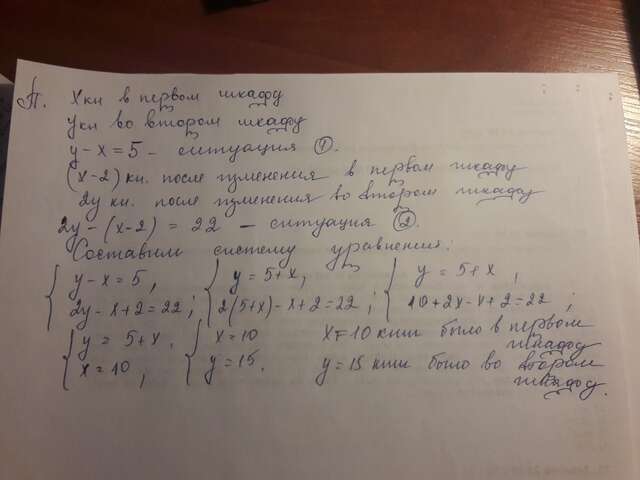 П. x кн в первом шкафу
y кн во втором шкафу
y - x = 5 - ситуация ①.
(x-2) кн. после изменения в первом шкафу
2y кн. после изменения во втором шкафу
2y - (x-2) = 22 - ситуация ②.
Составим систему уравнений:
{ y - x = 5, { y = 5 + x, { y = 5 + x,
2y - x + 2 = 22; 2(5+x) - x + 2 = 22; 10 + 2x - x + 2 = 22;
{ y = 5 + x, { x = 10 x = 10 книг было в первом шкафу
x = 10, y = 15. y = 15 книг было во втором шкафу.